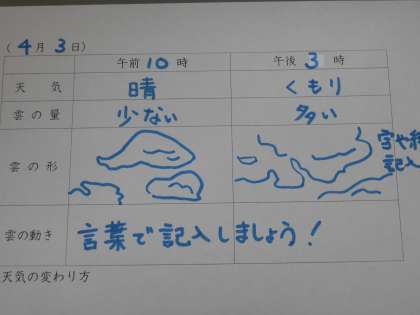 (4月3日)
午前10時 午後3時
天気 晴 くもり
雲の量 少ない 多い
雲の形 字や絵
記入
雲の動き 言葉で記入しましょう!
天気の変わり方